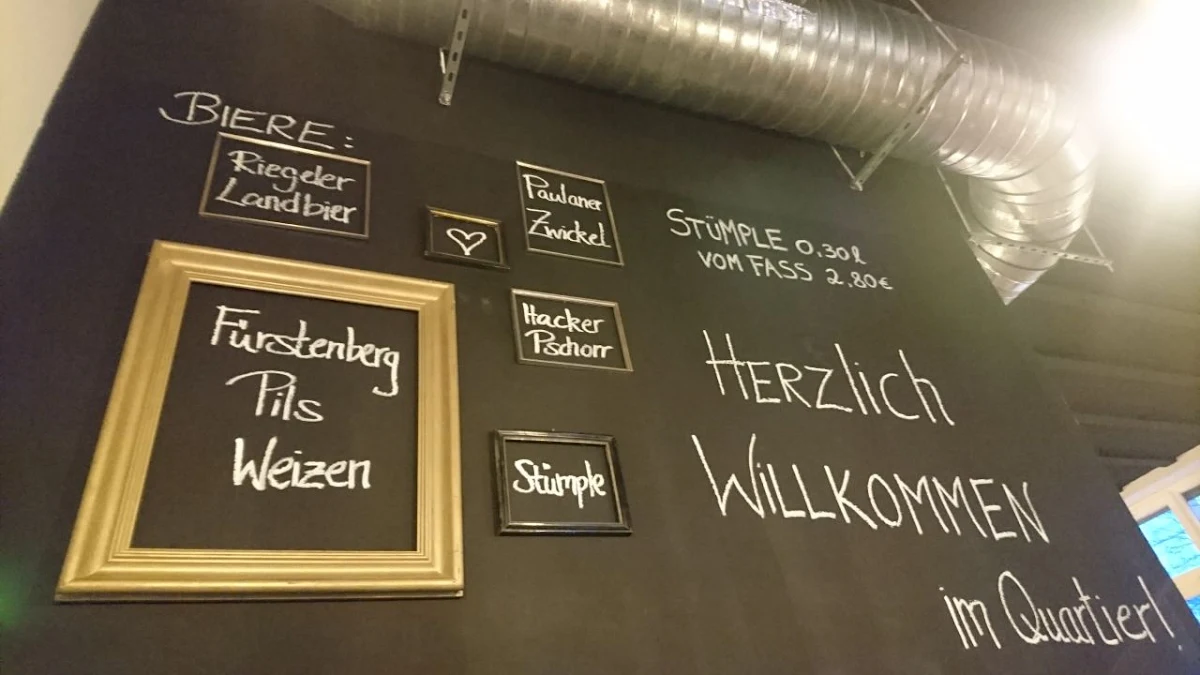 BIERE:
Riegeler
Landbier
Paulaner
Zwickel
Fürstenberg
Pils
Weizen
Hacker
Pschorr
Stümple
STÜMPLE 0,30l
VOM FASS 2,80€
HERZlich
WILLKOMMEN
im Quartier!